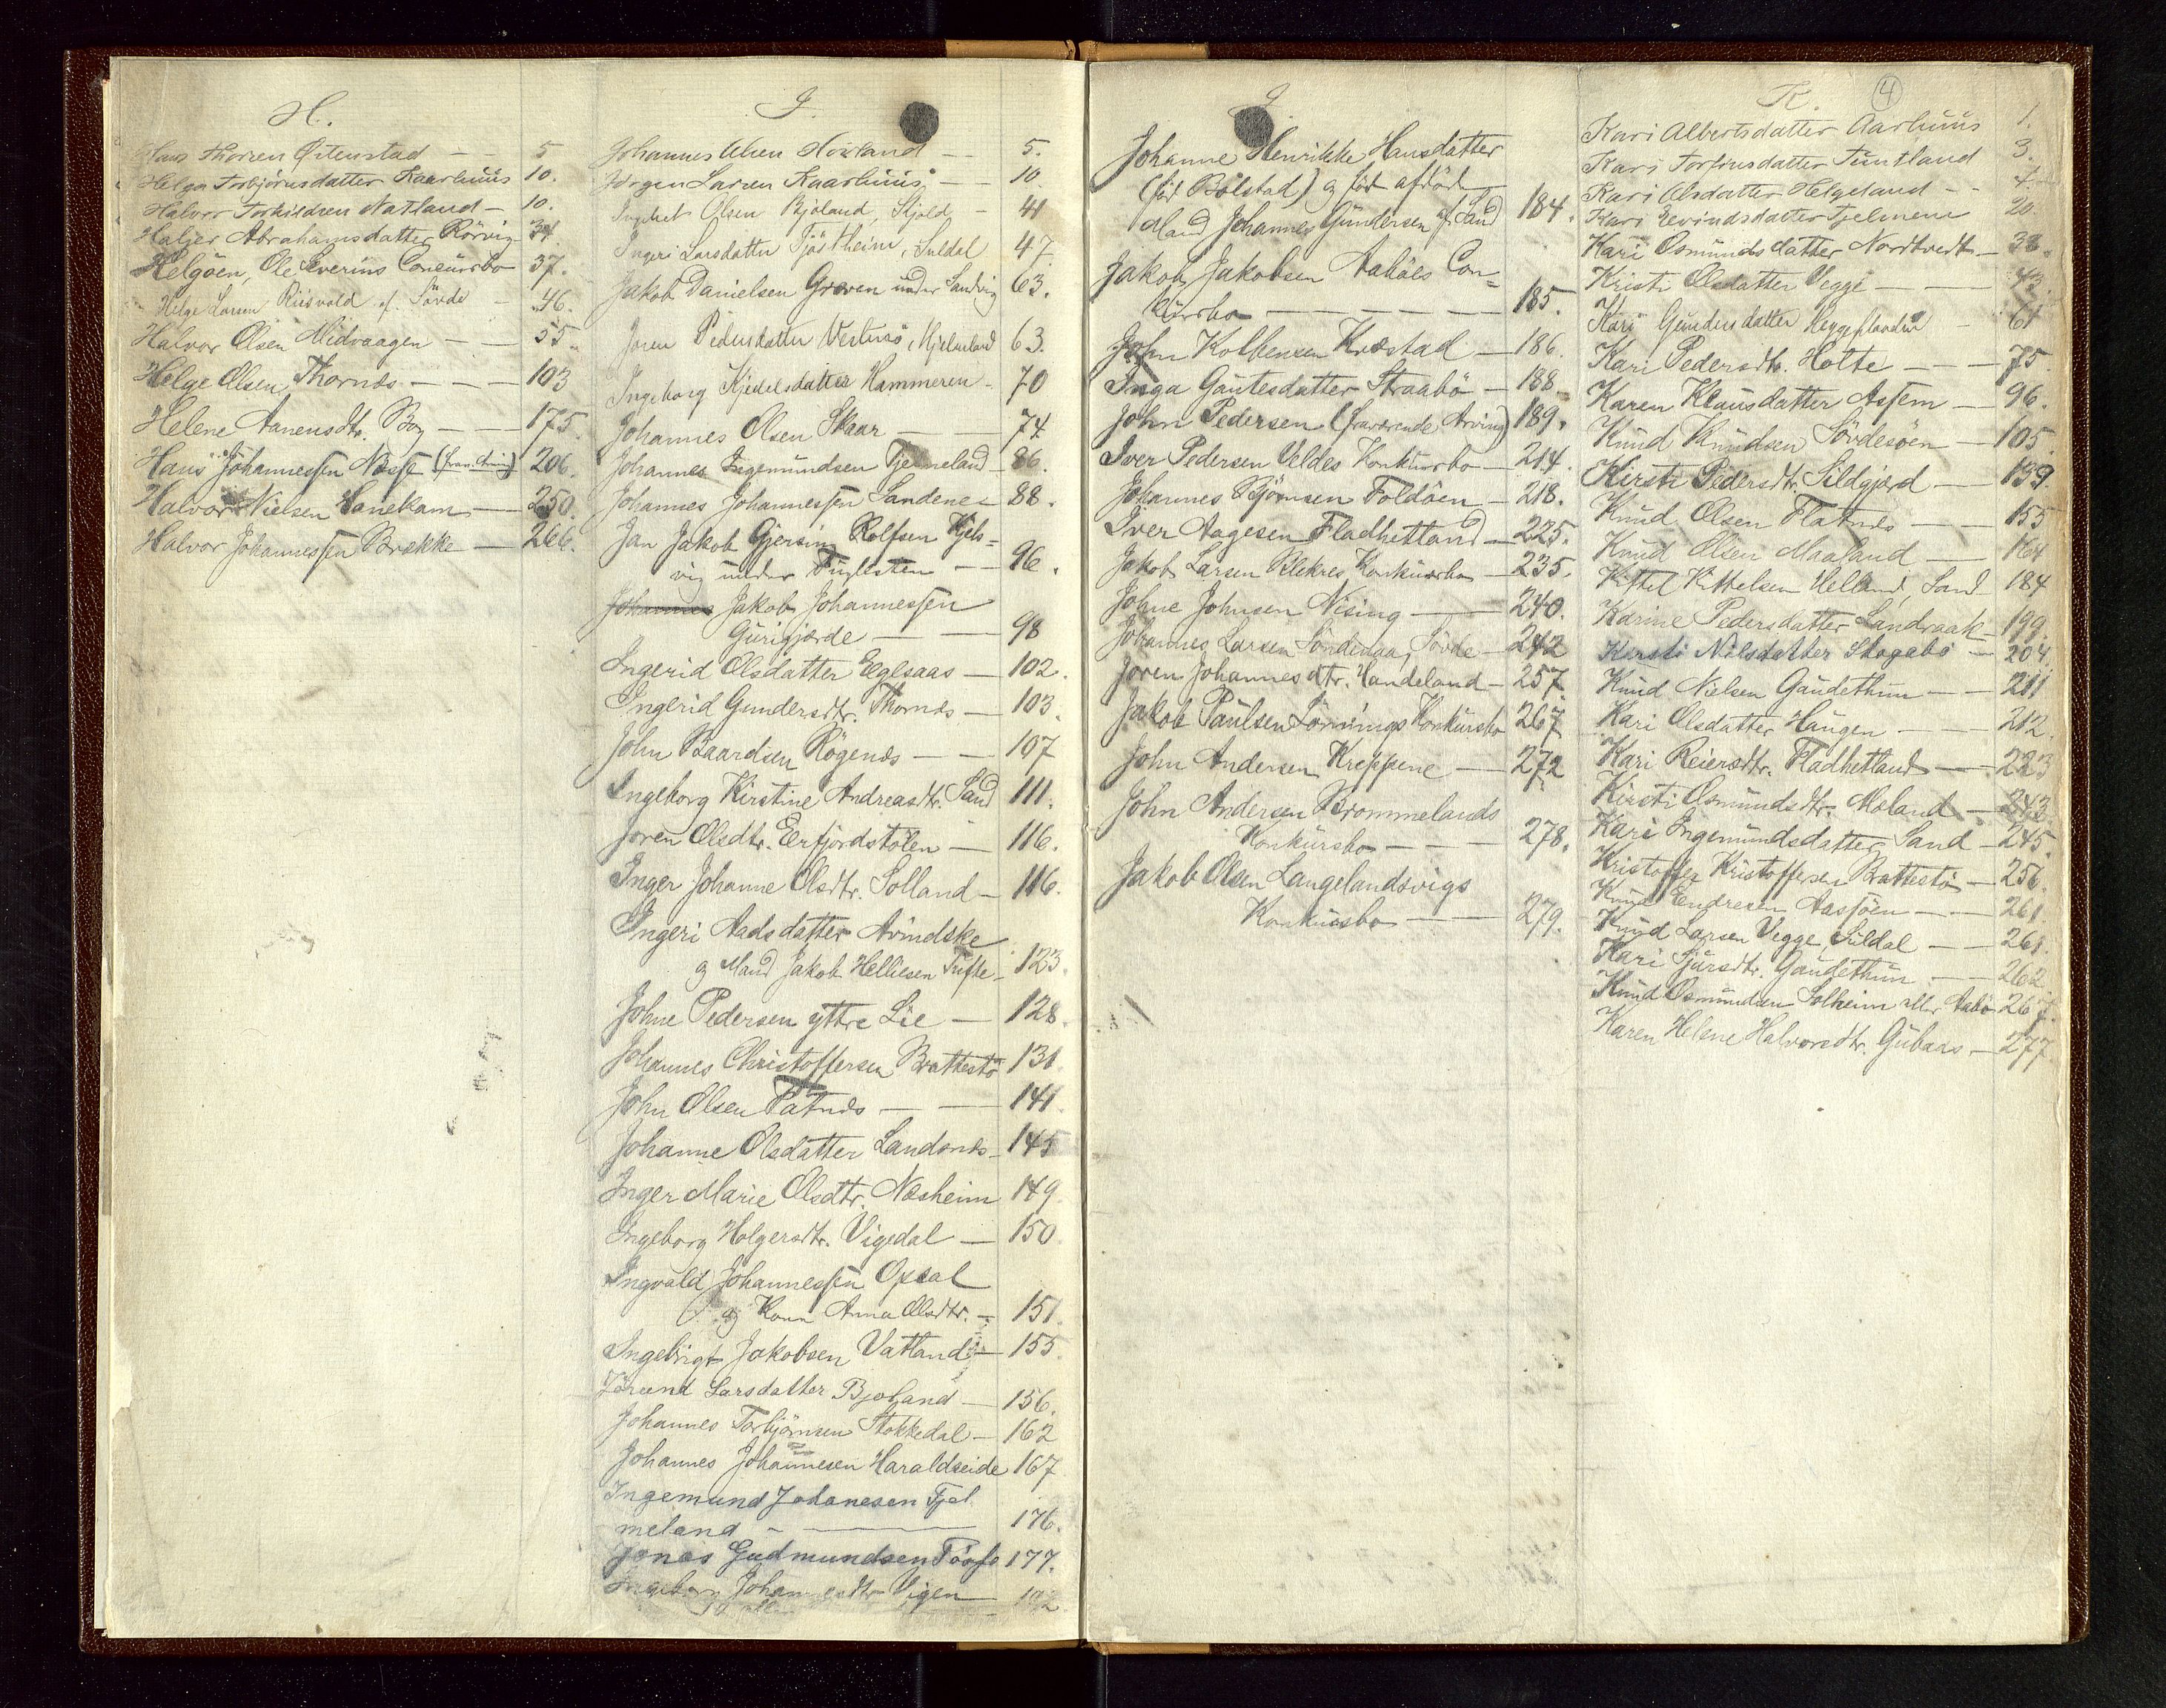 H.
Hans Thorsen Østenstad — — 5
Helga Torbjörnsdatter Kaarhuus 10.
Halvor Torkildsen Natland — 10.
Haljer Abrahamsdatter Rörvig 34.
Helgöen, Ole Severins Concursbo 37.
Helge Larsen Riisvold af Sövde — 46.
Halvor Olsen Midvaagen — — 55.
Helge Olsen Thornæs — — — 103
Helene Aanensdtr. Bog — — 175.
Hans Johannessen Næsse (frav. Arving) 206.
Halvor Nielsen Hanekam — 250.
Halvor Johannessen Brække — 266.
I.
Johannes Olsen Hovland — — 5.
Jörgen Larsen Kaarhuus, — — 10
Olsen Bjoland, Skjold, — 44
Ingeri Larsdatter Tjöstheim, Suldal 47.
Jakob Danielsen Greven under Sandvig 63.
Joren Pedersdatter Vestersö, Hjelmeland 63.
Ingeborg Kjedelsdatter Hammeren — 70
Johannes Olsen Skaar — — 74.
Johannes Ingemundsen Fjermeland — 86.
Johannes Johannessen Sandene — 88.
Jan Jakob Gjersing Rolfsen Kjels=
vig under Fuglesten — — 96.
Johannes Jakob Johannessen
Gurigjærde — — 98
Ingerid Olsdatter Eglsaas — 102.
Ingerid Gundersdtr. Thornæs — 103.
John Baardsen Rögenæs — — 107
Ingeborg Kirstine Andreasdtr. Sand 111.
Joren Olsdtr. Eerfjordstölen — 116.
Inger Johanne Olsdtr. Solland — 116.
Ingeri Aadsdatter Arnidske
og Mand Jakob Helliesen Tufte — 123.
Johne Pedersen yttre Lie — 128.
Johannes Christoffersen Brattestö 131.
John Olsen Fatnæs — — 141
Johanne Olsdatter Landsnæs — 145
Inger Marie Olsdtr. Næsheim 149
Ingeborg Holgersdtr. Vigedal — 150
Ingvald Johannessen Opsal
og Kone Anna Olsdtr. — 151.
Ingebrigt Jakobsen Vatland — 155
Jörund Larsdatter Bjoland — 156.
Johannes Torbjörnsen Stokkedal — 162
Johannes Johannesen Haraldseide 167
Ingemund Johanesen Fjel
meland — — 176.
Jonas Gudmundsen Tösse 177.
Ingeborg Johannesdtr. Vigen — 182
I.
Johanne Henrikke Hansdatter
(fød Bølstad) og før afdöde
Mand Johannes Gundersen af Sand 184.
Jakob Jakobsen Aaböes Con=
cursbo — — — — — 185.
John Kolbensen Kvæstad — 186.
Inga Gautesdatter Straabö — 188
John Pedersen (fraværende Arving) 189.
Iver Pedersen Veldes Konkursbo — 214.
Johannes Bjørnsen Foldöen — 218.
Iver Aagesen Fladhetland — 225.
Jakob Larsen Blekres Konkursbo — 235.
Johne Johnsen Nising — — 240.
Johannes Larsen Söndenaa, Sövde — 242
Joren Johannesdtr. Handeland — 257.
Jakob Paulsen Lönnings Konkursbo 267
John Andersen Kreppene — 272
John Andersen Brommelands
Konkursbo — — — 278.
Jakob Olsen Langelandsvigs
Konkursbo — — 279.
K.
4
Kari Albertsdatter Aarhuus 1.
Kari Torfinsdatter Tuntland 3.
Kari Olsdatter Helgeland — — 4.
Kari Eevindsdatter Fjelmene 20.
Kari Osmundsdatter Nordtvedt — 38.
Kristi Olsdatter Vegge — — 43.
Kari Gundersdatter 61
Kari Pedersdtr. Holte — — — 75.
Karen Klausdatter Assem — 96.
Knud Knudsen Sövdesöen — 105.
Kirsti Pedersdtr. Sildgjærd — 139.
Knud Olsen Flatnæs — — 155
Knud Olsen Maaland — 164
Kittel Kittelsen Helland, Sand 184
Karine Pedersdatter Landraak — 199.
Kirsti Nilsdatter Skogabö — 204.
Knud Nielsen Gaudethun — — 211
Kari Olsdatter Haugen — — 212.
Kari Reiersdtr. Fladhetland — 223
Kirsti Osmundsdtr. Moland — 243.
Kari Ingemundsdatter Sand — 245.
Kristoffer Kristoffersen Brattestö — 256.
Knud Endresen Aasföen — — 261
Knud Larsen Vegge, Suldal — — 261.
Kari Sjursdtr. Gaudethun — — 262.
Knud Osmundsen Solheim eller Aabö 267.
Karen Helene Halvorsdtr. Gubaas — 277.